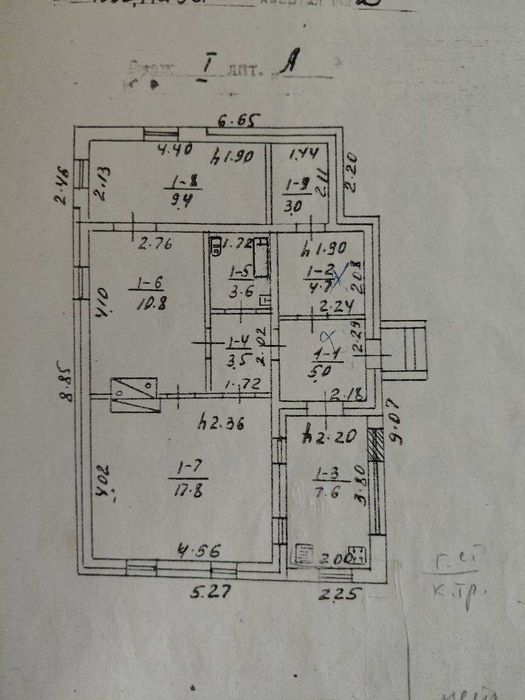 I лит. А
6.65
4.40 h1.90 1.44
2.46 2.13 1-8 9.4 1-9 3.0 2.11 2.20
2.76 1.72 h1.90
1-6 10.8 1-5 3.6 1-2 4.7 2.08
4.10 2.24
1-4 3.5 2.02 1-1 5.0 2.29
1.72 2.18
8.85 h2.36 h2.20 9.07
4.02 1-7 17.8 1-3 7.6 3.80
4.56 2.00
5.27 2.25
к.тр.